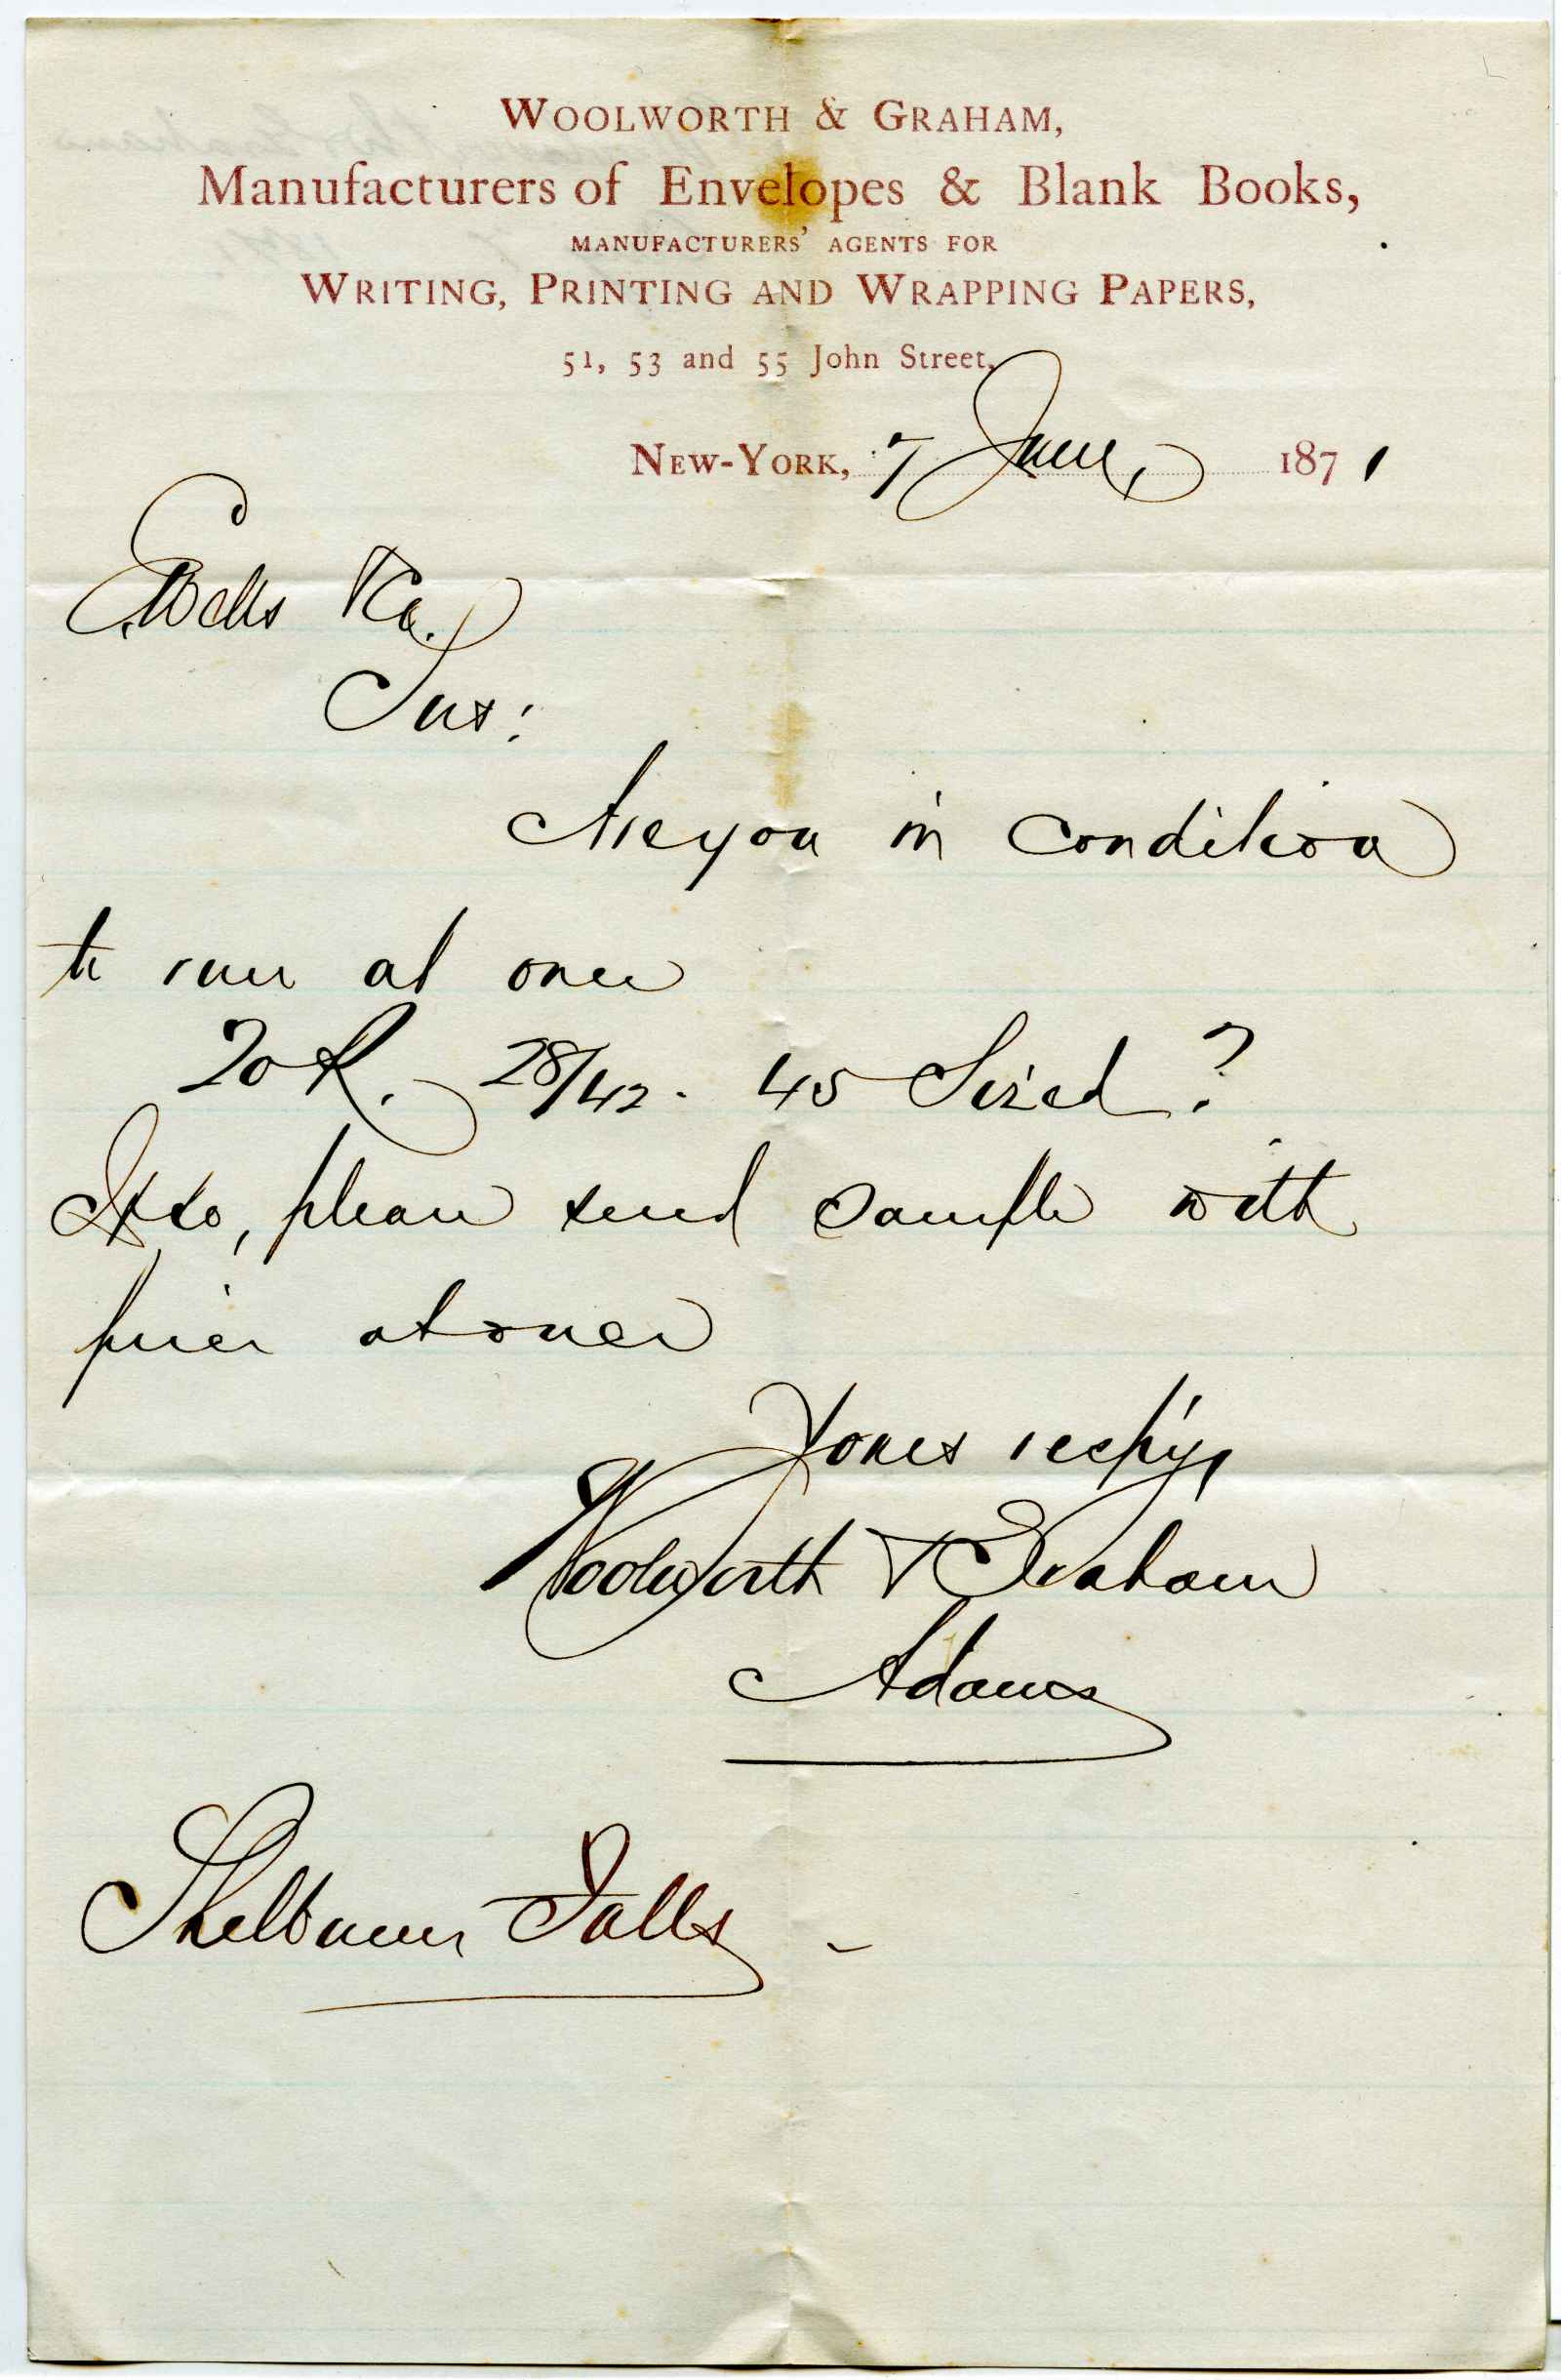 WOOLWORTH & GRAHAM,
Manufacturers of Envelopes & Blank Books,
MANUFACTURERS' AGENTS FOR
WRITING, PRINTING AND WRAPPING PAPERS,
51, 53 and 55 John Street,
NEW-YORK, 7 June, 1871
Wells & Co.
Sirs:
Are you in condition
to run at once
20 R. 28/42. 45 Sized?
If so, please send sample with
price at once
Yours resp'y,
Woolworth & Graham
Adams
Shelburne Falls